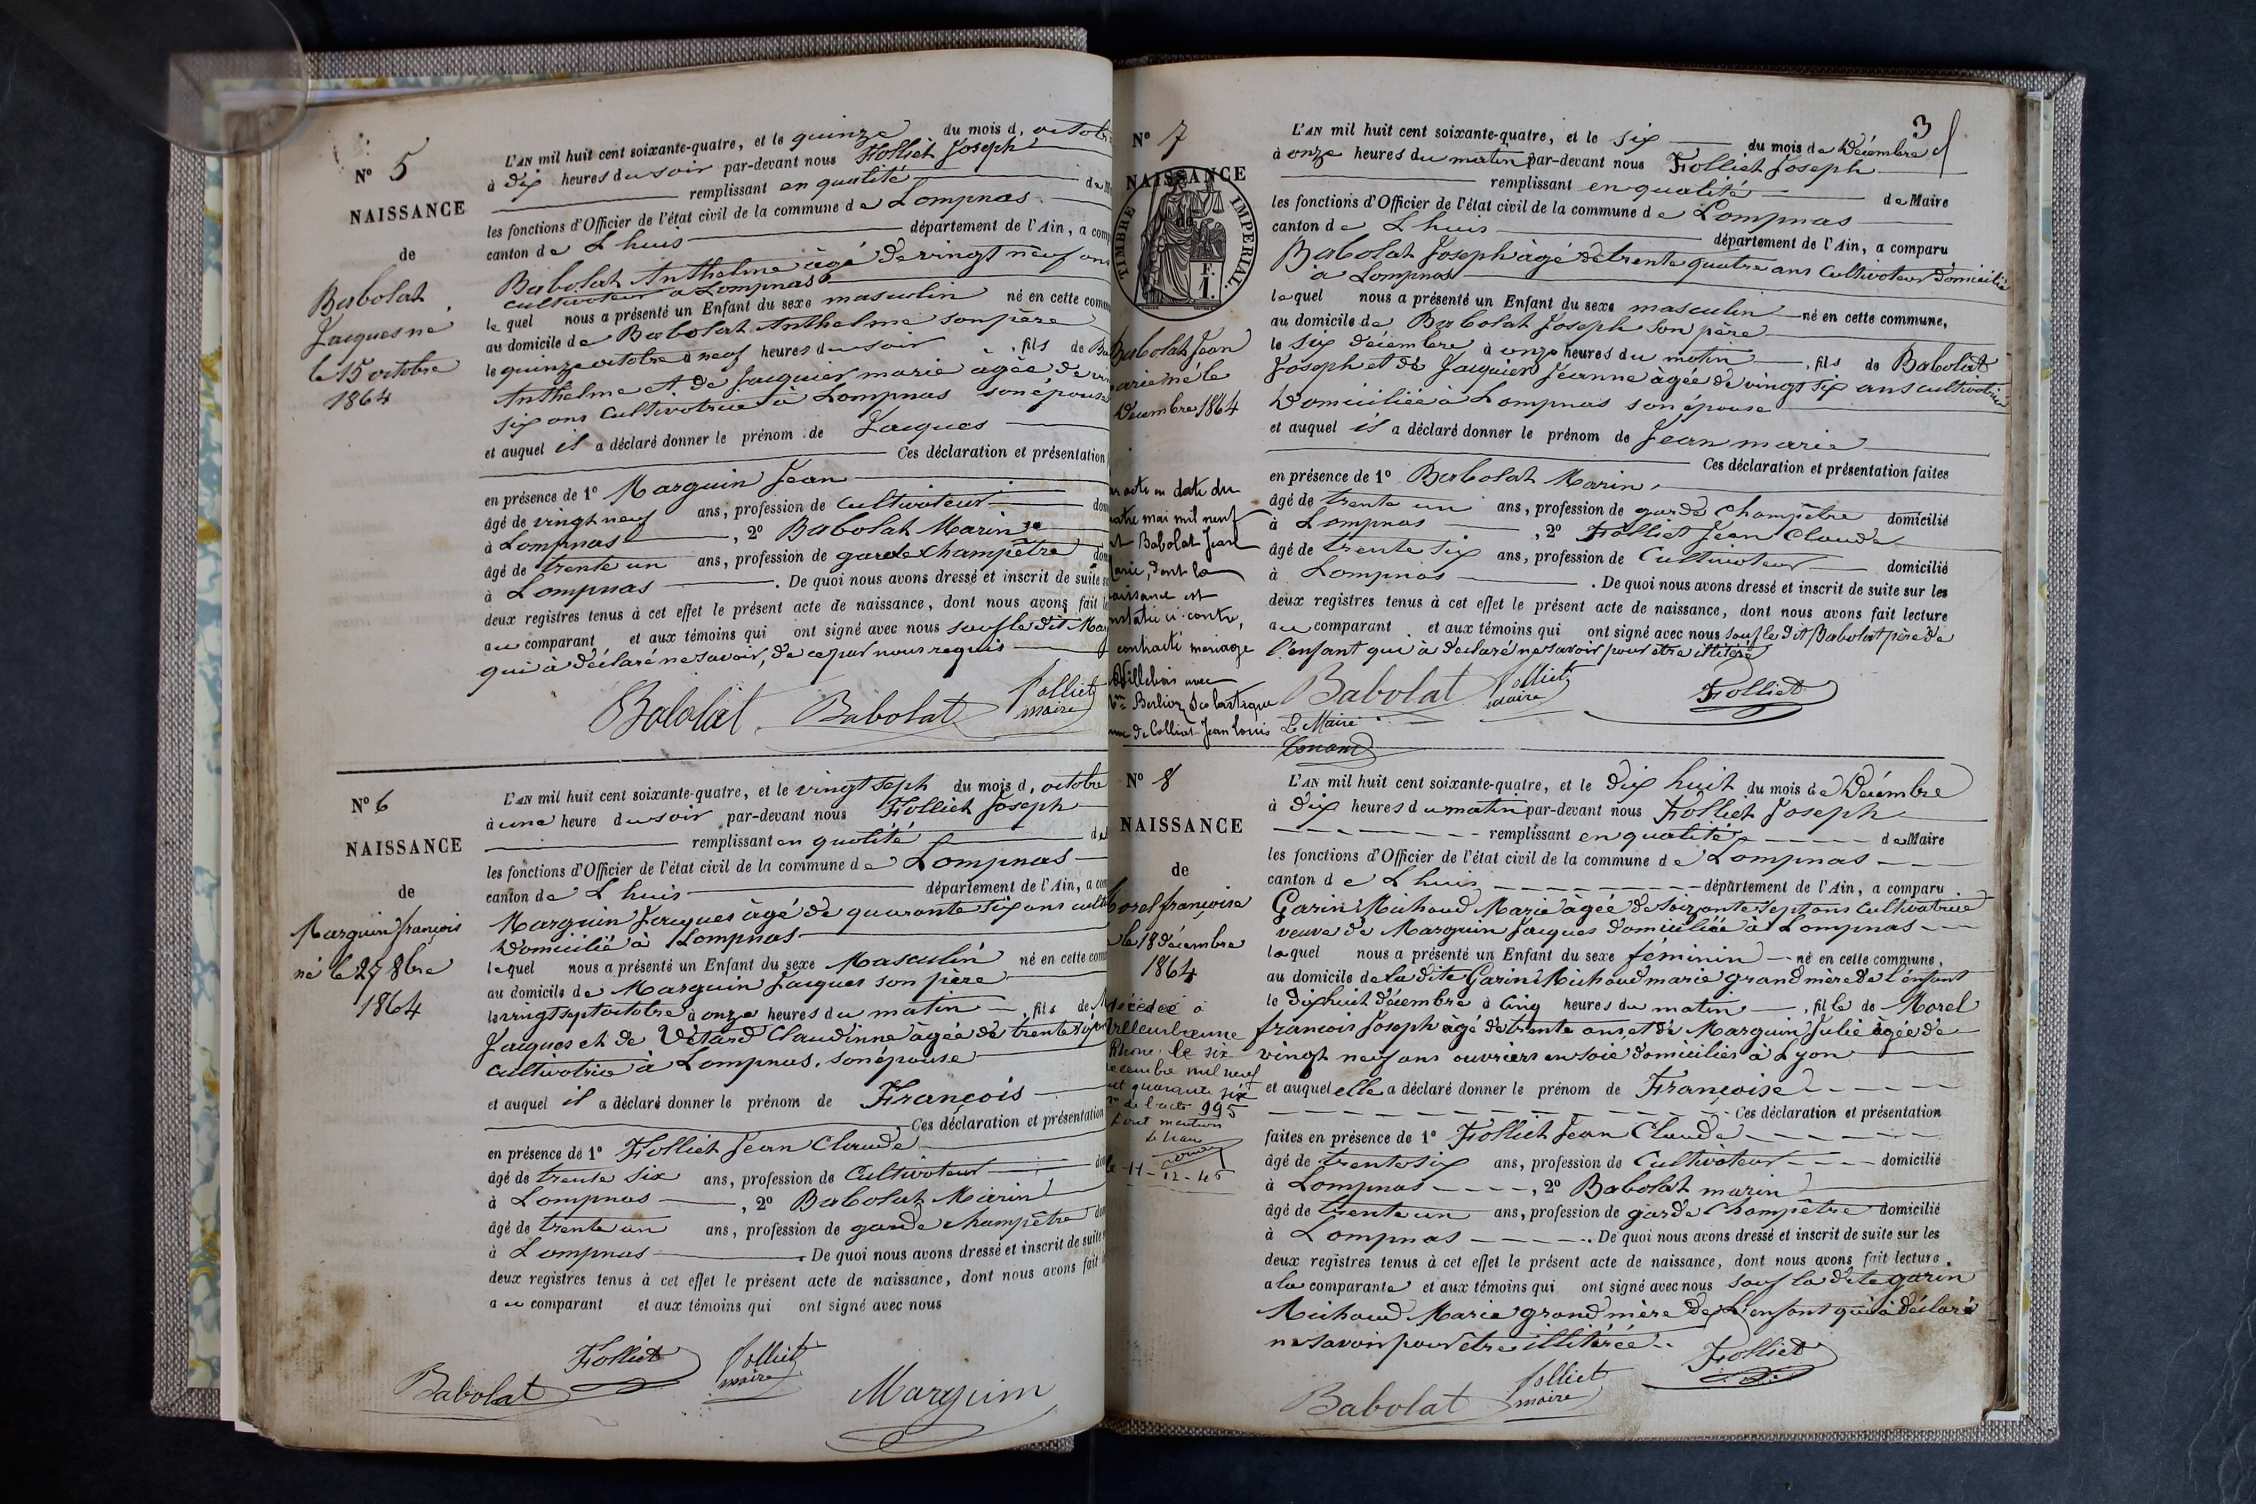 N° 5
NAISSANCE
de
Babolat
Jacques né
le 15 octobre
1864
L'AN mil huit cent soixante-quatre, et le quinze du mois d, octobre
à dix heures du soir par-devant nous Folliet Joseph
remplissant en qualité de
les fonctions d'Officier de l'état civil de la commune de Lompnas
canton de Lhuis département de l'Ain, a
Babolat Anthelme âgé de vingt neuf ans
cultivateur à Lompnas
lequel nous a présenté un Enfant du sexe masculin né en cette
au domicile de Babolat Anthelme son père
le quinze octobre à neuf heures du soir, fils de
Anthelme et de Jacquier marie agée de
six ans cultivatrice à Lompnas son épouse
et auquel il a déclaré donner le prénom de Jacques
Ces déclaration et présentation
en présence de 1° Marguin Jean
âgé de vingt neuf ans, profession de cultivateur
à Lompnas, 2° Babolat Marin
âgé de trente un ans, profession de garde champêtre
à Lompnas. De quoi nous avons dressé et inscrit de suite
deux registres tenus à cet effet le présent acte de naissance, dont nous avons fait
au comparant et aux témoins qui ont signé avec nous sauf le dit
qui à déclaré ne savoir, de ce par nous requis
Babolat Babolat Folliet
maire
N° 6
NAISSANCE
de
Marguin françois
né le 27 8bre
1864
L'AN mil huit cent soixante-quatre, et le vingt sept du mois d, octobre
à une heure du soir par-devant nous Folliet Joseph
remplissant en qualité
les fonctions d'Officier de l'état civil de la commune de Lompnas
canton de Lhuis département de l'Ain, a
Marguin Jacques âgé de quarante six ans
domicilié à Lompnas
lequel nous a présenté un Enfant du sexe Masculin né en cette
au domicile de Marguin Jacques son père
le vingt sept octobre à onze heures du matin, fils de
Jacques et de Vétard Claudinne âgée de trente
cultivatrice à Lompnas, son épouse
et auquel il a déclaré donner le prénom de François
Ces déclaration et présentation
en présence de 1° Folliet Jean Claude
âgé de trente six ans, profession de Cultivateur
à Lompnas, 2° Babolat Marin
âgé de trente un ans, profession de garde champêtre
à Lompnas. De quoi nous avons dressé et inscrit de suite
deux registres tenus à cet effet le présent acte de naissance, dont nous avons fait
au comparant et aux témoins qui ont signé avec nous
Babolat Folliet Folliet Marguin
maire
3
N° 7
NAISSANCE
de
TIMBRE IMPERIAL.
F.
I.
Babolat Jean
marie né le
Décembre 1864
acte en date du
quatre mai mil neuf
Babolat Jean
Marie, dont la
naissance est
constatée ci-contre,
contracté mariage
avec
Berlioz Scolastique
de Colliat Jean Louis
Le Maire
L'AN mil huit cent soixante-quatre, et le six du mois de Décembre
à onze heures du matin par-devant nous Folliet Joseph
remplissant en qualité de Maire
les fonctions d'Officier de l'état civil de la commune de Lompnas
canton de Lhuis département de l'Ain, a comparu
Babolat Joseph âgé de trente quatre ans Cultivateur domicilié
à Lompnas
lequel nous a présenté un Enfant du sexe masculin né en cette commune,
au domicile de Babolat Joseph son père
le six décembre à onze heures du matin, fils de Babolat
Joseph et de Jacquier Jeanne âgée de vingt six ans cultivatrice
Domiciliée à Lompnas son épouse
et auquel il a déclaré donner le prénom de Jean marie
Ces déclaration et présentation faites
en présence de 1° Babolat Marin,
âgé de trente un ans, profession de garde champêtre domicilié
à Lompnas, 2° Folliet Jean Claude
âgé de trente six ans, profession de Cultivateur domicilié
à Lompnas. De quoi nous avons dressé et inscrit de suite sur les
deux registres tenus à cet effet le présent acte de naissance, dont nous avons fait lecture
au comparant et aux témoins qui ont signé avec nous sauf le dit Babolat père de
l'enfant qui à déclaré ne savoir pour être illitéré
Babolat Folliet Folliet
maire
N° 8
NAISSANCE
de
Morel françoise
le 18 décembre
1864
décédée à
Villeurbanne
Rhône le six
décembre mil neuf
cent quarante six
de l'acte 995
Dont mention
11-12-46
L'AN mil huit cent soixante-quatre, et le dix huit du mois de Décembre
à dix heures du matin par-devant nous Folliet Joseph
remplissant en qualité de Maire
les fonctions d'Officier de l'état civil de la commune de Lompnas
canton de Lhuis département de l'Ain, a comparu
Garin Michaud Marie âgée de soixante sept ans cultivatrice
veuve de Marguin Jacques domiciliée à Lompnas
laquel nous a présenté un Enfant du sexe féminin né en cette commune,
au domicile de la dite Garin Michaud marie grand mère de l'enfant
le dix huit décembre à cinq heures du matin, fille de Morel
françois Joseph âgé de trente ans et de Marguin Julie âgée de
vingt neuf ans ouvriers en soie domiciliés à Lyon
et auquel elle a déclaré donner le prénom de Françoise
Ces déclaration et présentation
faites en présence de 1° Folliet Jean Claude
âgé de trente six ans, profession de Cultivateur domicilié
à Lompnas, 2° Babolat marin
âgé de trente un ans, profession de garde Champêtre domicilié
à Lompnas. De quoi nous avons dressé et inscrit de suite sur les
deux registres tenus à cet effet le présent acte de naissance, dont nous avons fait lecture
a la comparante et aux témoins qui ont signé avec nous sauf la dite garin
Michaud Marie grand mère de L'enfant qui à déclaré
ne savoir pour être illitérée
Babolat Folliet Folliet
maire